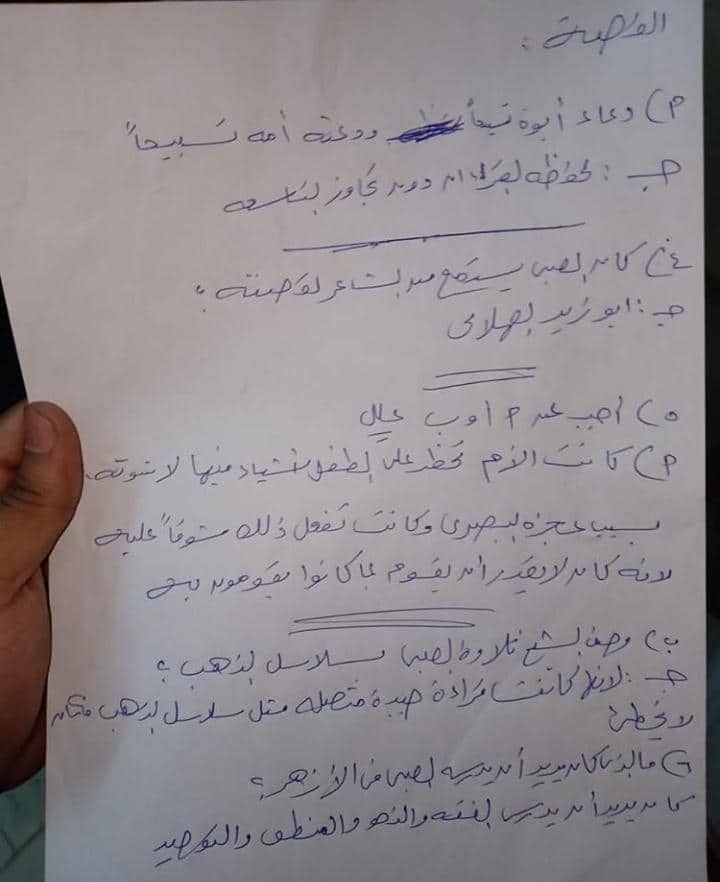 القصة :
أ ) دعاء أبوة شيخاً ودعته أمه شيخاً
جـ : لحفظه القرآن دون تجاوز التاسعة
٤) كان الصبى يستمع من الشاعر لقصته ؟
جـ : ابو زيد الهلالى
٥ ) أجب عن أ أو ب علل
أ ) كانت الأم تحظر على الطفل اشياء منها لاخوته
بسبب عجزه البصرى وكانت تفعل ذلك خوفاً عليه
لانه كان لا يقدر أن يقوم بما كانوا يقومون به
ب ) وصف الشيخ تلاوة الصبى بسلاسل الذهب ؟
جـ : لانها كانت قراءة جيدة متصله مثل سلاسل الذهب
لا يخطئ
٦) ما الذى كان يريد أن يدرسه الصبى فى الأزهر ؟
كان يريد أن يدرس الفقه والنحو والمنطق والتوحيد